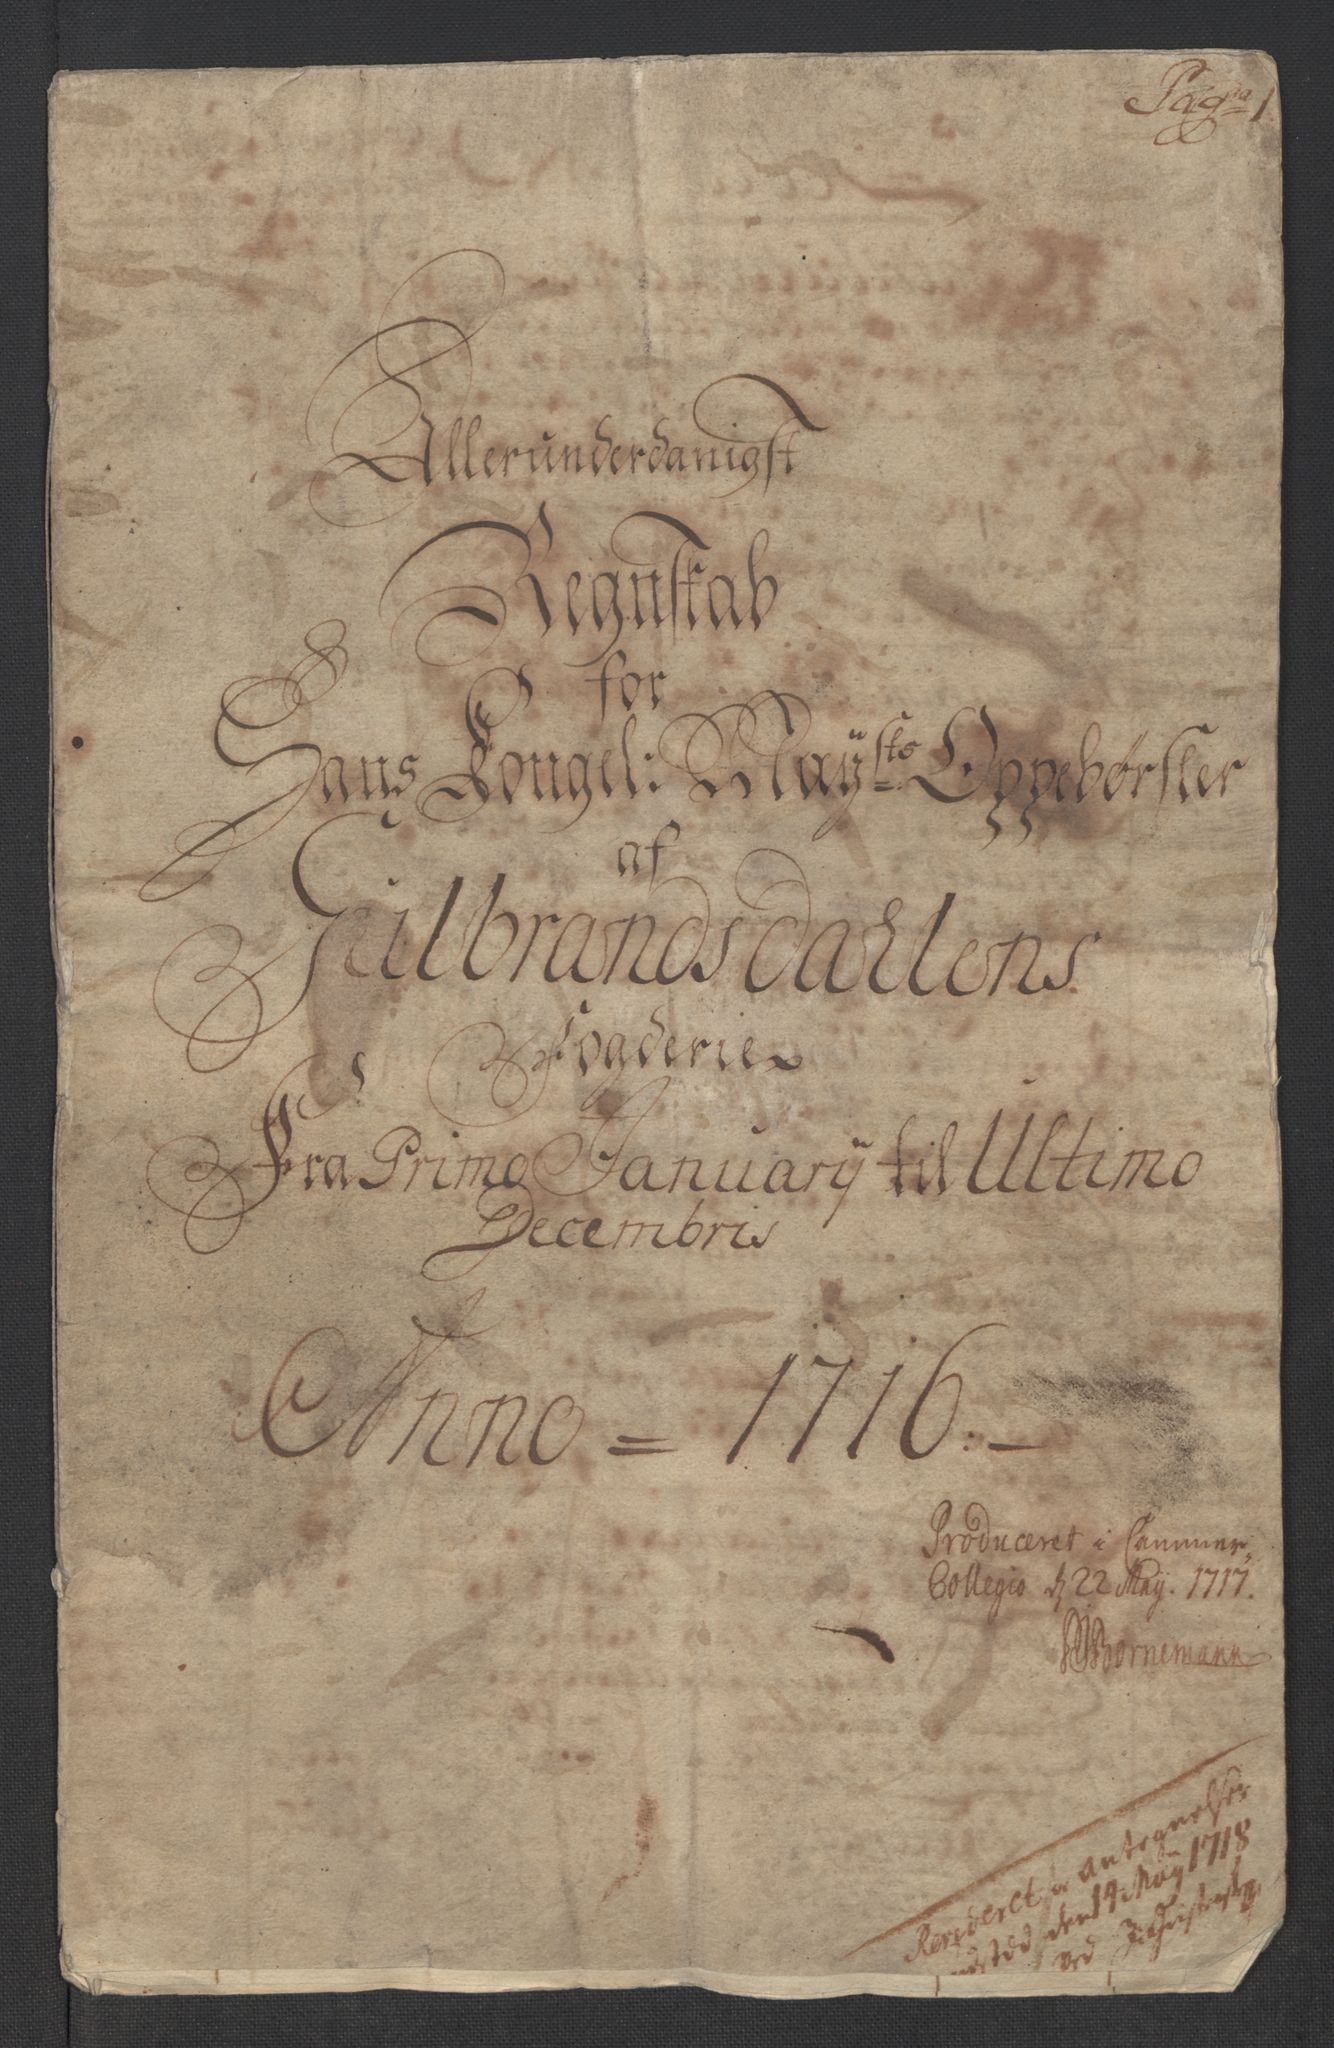 Pag:na 1
Allerunderdanigst
Regnskab
for
Hans Kongel: Mayÿsts Oppebørsler
af
Gulbrandsdahlens
Fogderie
Fra Primo Januarÿ til Ultimo
Decembris
Anno = 1716. –
Produceret i Cammer,
Collegio d 22 Maÿ. 1717.
Bornemann
Revideret og antegnelser
udsted den 14 Maÿ 1718
ved